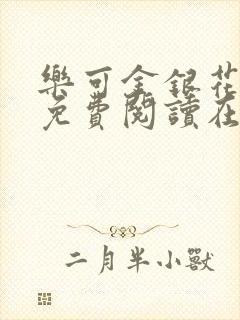 樂可金銀花
免費閱讀在
二月半小獸